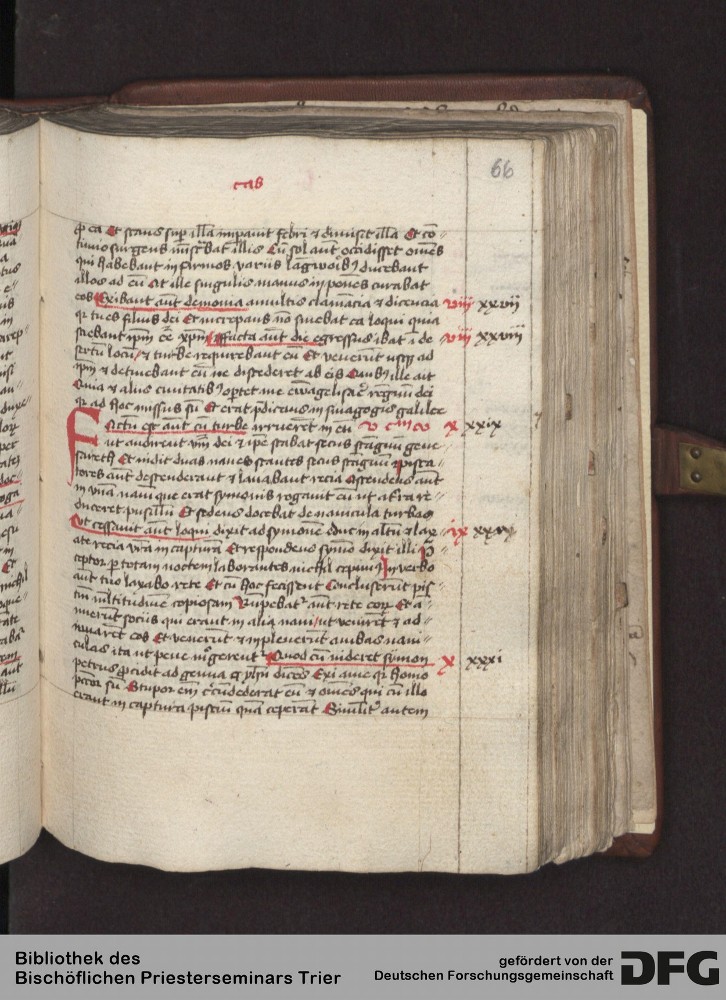 cas
66
p ea Et stans sup̄ illā inpauit febri ⁊ dimisit illā Et cō
tinuo surgens mīst̄bat illis Cū sol aūt occidisset om̄es
qui habebant infirmos variis lāgwoib₃ ducebant
illos ad eū At ille singulis manus inponēs curabat
eos Exibant aūt demonia a multis clamācia ⁊ dicencia viii xxvii
qr tu es filius dei Et increpans nō siuebat ea loqui quia
sciebant ipm̄ ēē xpm̄ ffacta aūt die egressus ibat ī de viii xxviii
sertū locū ⁊ turbe requirebant eū Et venerūt usq₃ ad
ipm̄ ⁊ detinebant eū ne discederet ab eis Quib₃ ille ait
Quia ⁊ aliis ciuitatib₃ oportet me ewāgelisare regnū dei
qr ad hoc missus sū Et erat p̄dicans in sinagogis galilee
Factū est aūt cū turbe irruerēt in eū v cᵐ x xxix
ut audirent v̄m dei ⁊ ipe stabat secus stāgnū gene
sareth Et vidit duas naues stantes secus stāgnū pisca
tores aūt descenderant ⁊ lauabant recia Ascendens aūt
in vnā nauī que erat symonis rogauit eū ut a t̄ra re
duceret pusillū Et sedens docebat de nauicula turbas
Ut cessauit aūt loqui dixit ad symonē duc in altū ⁊ lax ix xxx
ate recia vr̄a in capturā Et respondens symō dixit illi p̄
ceptor p totam noctem laborantes nichil cepim⁹ In verbo
aūt tuo laxabo rete Et cū hoc fecissent Concluserūt pis
ciū multitudinē copiosam Rumpebatᵣ aūt rete eoꝝ Et ā
nuerūt sociis qui erant in alia naui ut venirēt ⁊ ad
iuuarēt eos Et venerūt ⁊ impleuerūt ambas naui
culas ita ut pene mērgerentᵣ Quod cū videret symon x xxxi
petrus p̄cidit ad genua ihū dicēs Exi a me qr homo
pccōr sū Stupor em̄ circūdederat eū ⁊ om̄es qui cū illo
erant in captura pisciū quā ceperāt Similitᵣ autem
Bibliothek des
Bischöflichen Priesterseminars Trier
gefördert von der
Deutschen Forschungsgemeinschaft
DFG